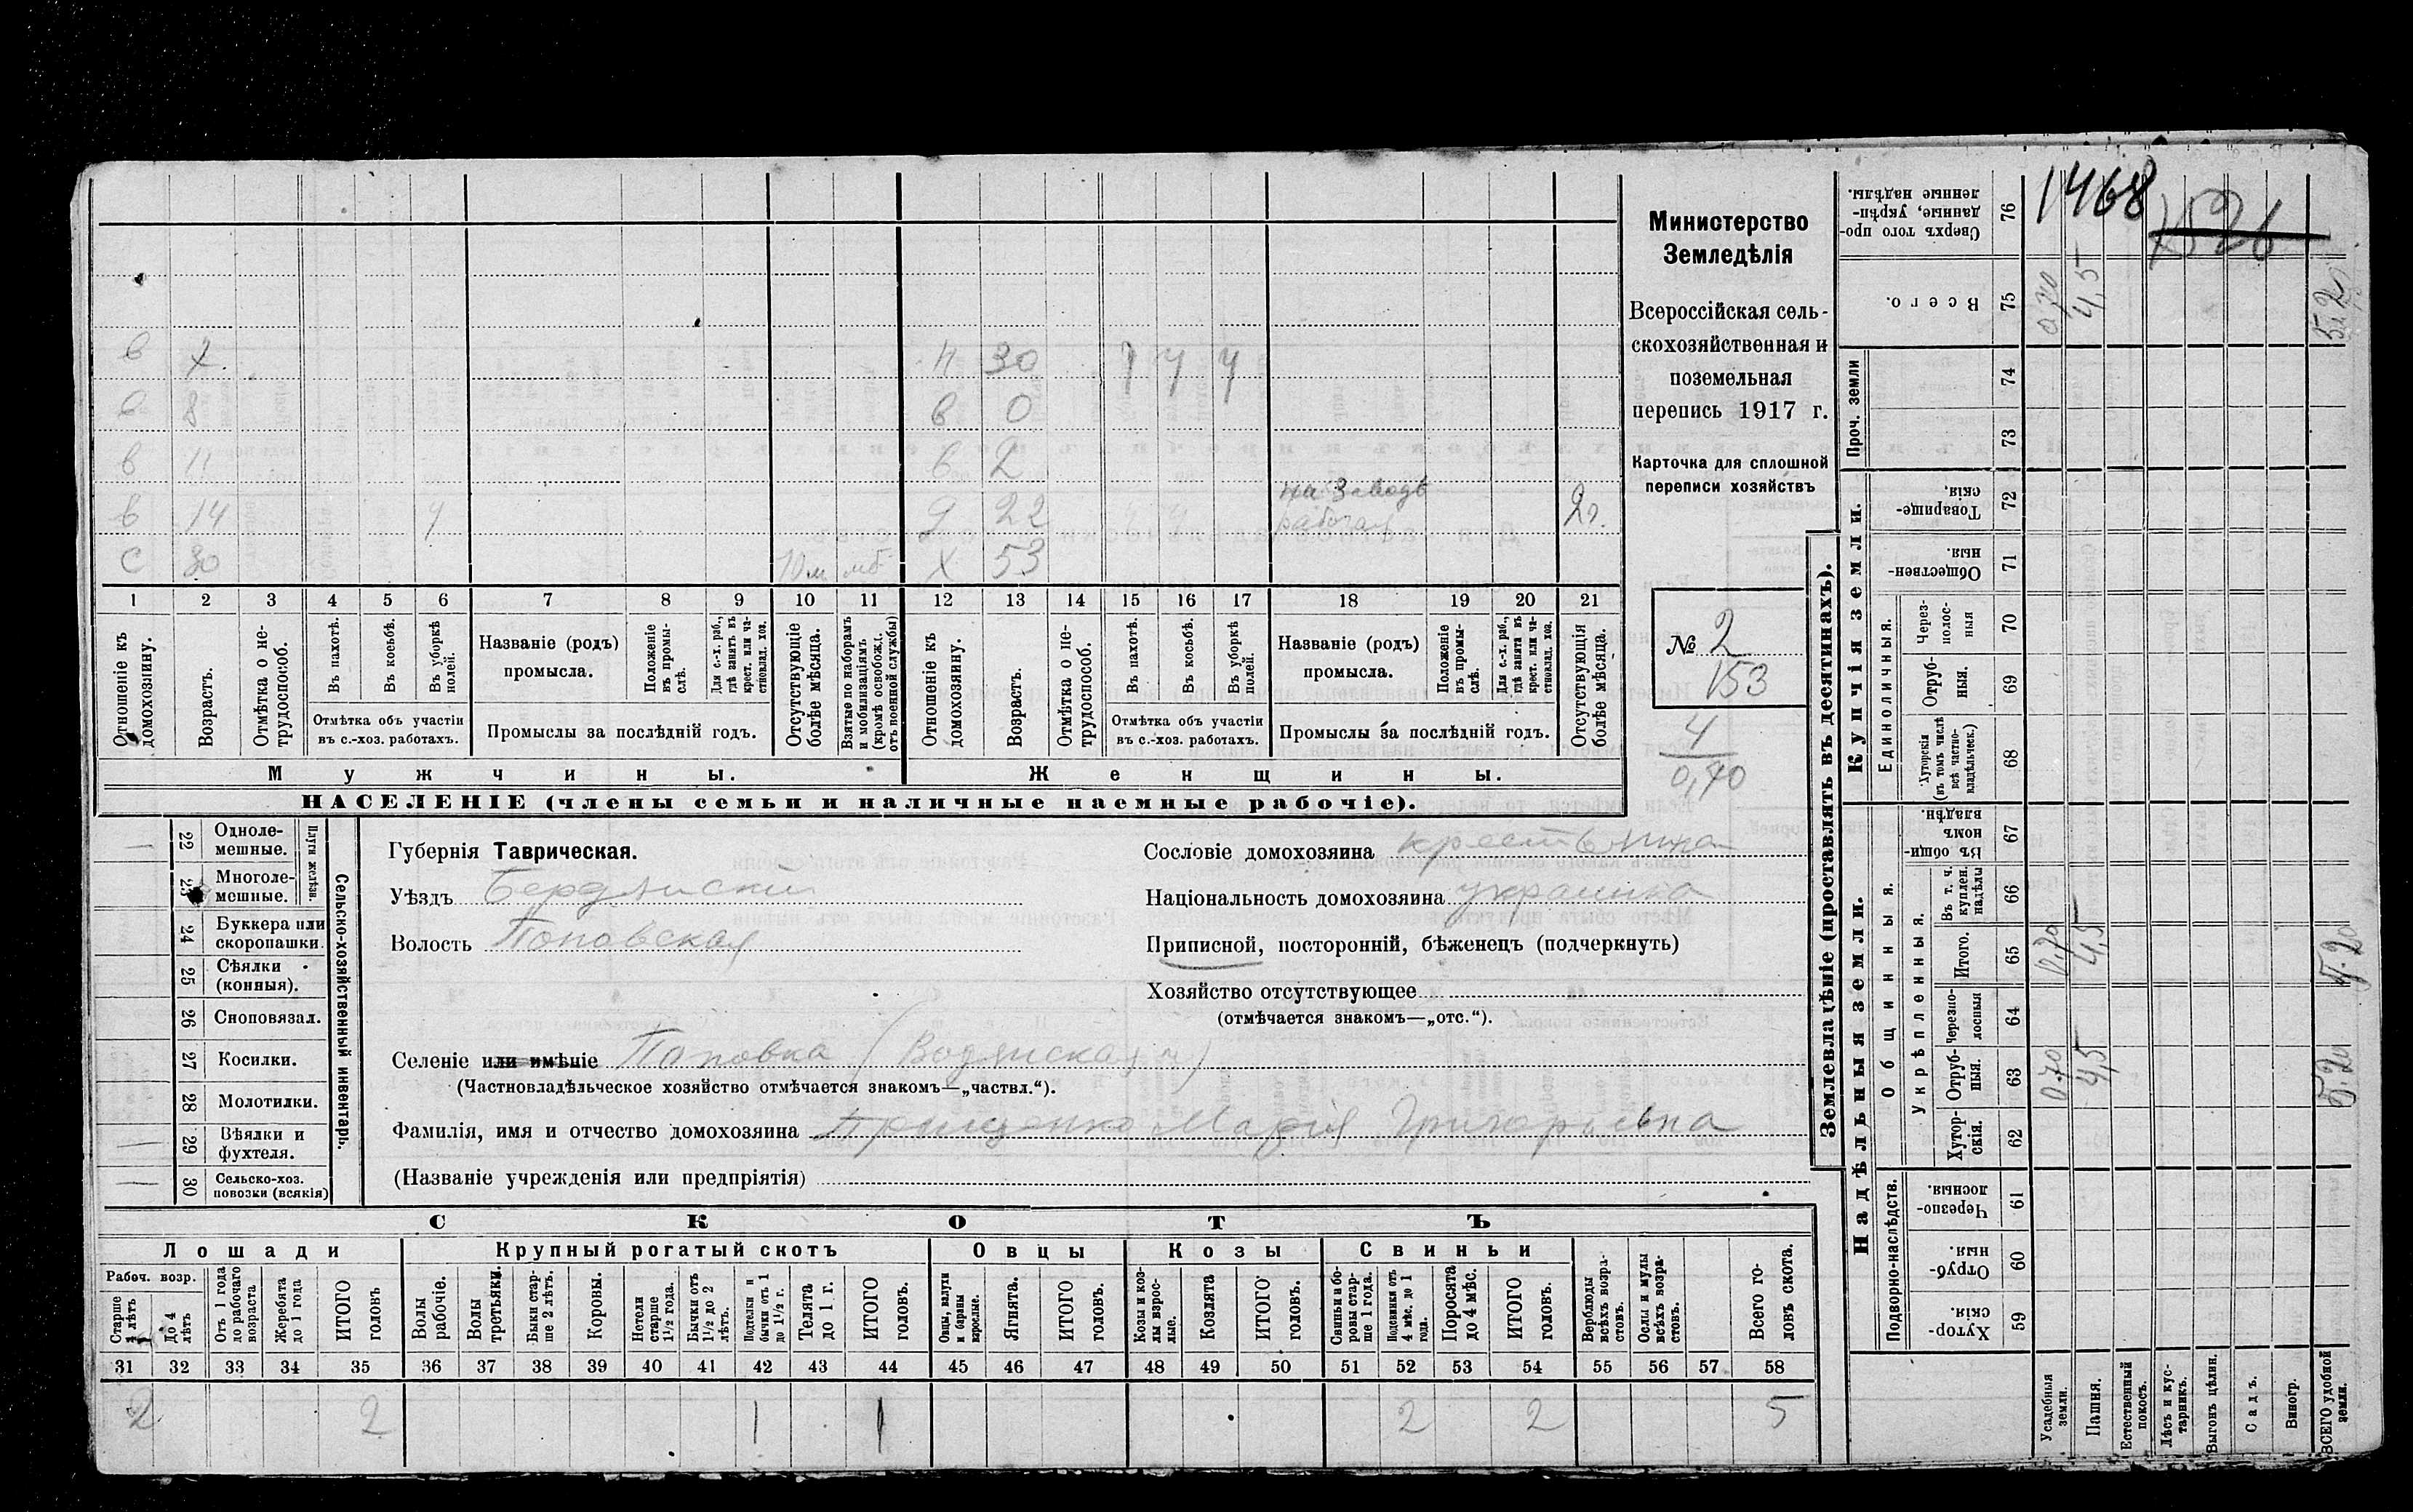 1468
1526
Министерство
Земледѣлія
Всероссійская сель-
скохозяйственная и
поземельная
перепись 1917 г.
Карточка для сплошной
переписи хозяйствъ
№ 2
153
4
0,70
в 7. н 30 ч ч ч
в 8 в 0
в 11 в 2
в 14 ч д 22 ч ч на заводѣ 2г.
с 30 10 м мб х 53
1 2 3 4 5 6 7 8 9 10 11 12 13 14 15 16 17 18 19 20 21
Отношеніе къ домохозяину.
Возрастъ.
Отмѣтка о не-трудоспособ.
Въ пахотѣ.
Въ косьбѣ.
Въ уборкѣ полей.
Отмѣтка объ участіи
въ с.-хоз. работахъ.
Названіе (родъ)
промысла.
Положеніе въ промы-слѣ.
Для с.-х. раб., гдѣ занятъ въ крест. или ча-стновлад. хоз.
Промыслы за послѣдній годъ.
Отсутствующіе болѣе мѣсяца.
Взятые по наборамъ и мобилизаціямъ (кромѣ освобожд. отъ военной службы)
Отношеніе къ домохозяину.
Возрастъ.
Отмѣтка о не-трудоспособ.
Въ пахотѣ.
Въ косьбѣ.
Въ уборкѣ полей.
Отмѣтка объ участіи
въ с.-хоз. работахъ.
Названіе (родъ)
промысла.
Положеніе въ промы-слѣ.
Для с.-х. раб., гдѣ занята въ крест. или ча-стновлад. хоз.
Промыслы за послѣдній годъ.
Отсутствующія болѣе мѣсяца.
Мужчины. Женщины.
НАСЕЛЕНІЕ (члены семьи и наличные наемные рабочіе).
Сельско-хозяйственный инвентарь.
Плуги желѣзн.
22 Одноле-мешные.
23 Многоле-мешные.
24 Буккера или скоропашки.
25 Сѣялки (конныя).
26 Сноповязал.
27 Косилки.
28 Молотилки.
29 Вѣялки и фухтеля.
30 Сельско-хоз. повозки (всякія)
Губернія Таврическая.
Уѣздъ Бердянскій
Волость Поповская
Сословіе домохозяина крестьянка
Національность домохозяина украинка
Приписной, посторонній, бѣженецъ (подчеркнуть)
Хозяйство отсутствующее
(отмѣчается знакомъ—„отс.“).
Селеніе или имѣніе Поповка (Водянская)
(Частновладѣльческое хозяйство отмѣчается знакомъ—„частвл.“).
Фамилія, имя и отчество домохозяина Марія Григорьевна
(Названіе учрежденія или предпріятія)
СКОТЪ
Лошади Крупный рогатый скотъ Овцы Козы Свиньи
Рабоч. возр.
Старше 4 лѣтъ
До 4 лѣтъ
Отъ 1 года до рабочаго возраста
Жеребята до 1 года
ИТОГО головъ
Волы рабочіе.
Волы третьяки.
Быки стар-ше 2 лѣтъ.
Коровы.
Нетели старше 1½ года.
Бычки отъ 1½ до 2 лѣтъ.
Подтелки и бычки отъ 1 до 1½ г.
Телята до 1 г.
ИТОГО головъ.
Овцы, валухи и бараны взрослые.
Ягнята.
ИТОГО головъ.
Козы и коз-лы взрос-лые.
Козлята
ИТОГО головъ.
Свиньи и бо-ровы стар-ше 1 года.
Подсвинки отъ 4 мѣс. до 1 года.
Поросята до 4 мѣс.
ИТОГО головъ.
Верблюды всѣхъ возра-стовъ.
Ослы и мулы всѣхъ возра-стовъ.
Всего го-ловъ скота.
31 32 33 34 35 36 37 38 39 40 41 42 43 44 45 46 47 48 49 50 51 52 53 54 55 56 57 58
2 2 1 1 2 2 5
Землевладѣніе (проставлять въ десятинахъ).
Надѣльныя земли.
Купчія земли.
Проч. земли
Подворно-наслѣдств.
Общинныя.
Укрѣпленныя.
Единоличныя.
Сверхъ того про-данные, укрѣп-ленные надѣлы. 76
Всего. 75 0,70 4,5 5.20
74
73
Товарище-скія. 72
Обществен-ныя. 71
Через-полос-ныя 70
Отруб-ныя. 69
Хуторскія (въ томъ числѣ всѣ частно-владѣльческ.) 68
Въ общин-номъ владѣн. 67
Въ т. ч. куплен. надѣлы 66
Итого. 65 0,70 4,5 5.20
Черезпо-лосныя 64
Отруб-ныя. 63 0.70 4,5 5.20
Хутор-скія. 62
Черезпо-лосныя. 61
Отруб-ныя. 60
Хутор-скія. 59
Усадебныя земли.
Пашня.
Естественный покосъ.
Лѣсъ и кус-тарникъ.
Выгонъ цѣлин.
Садъ.
Виногр.
ВСЕГО удобной земли.